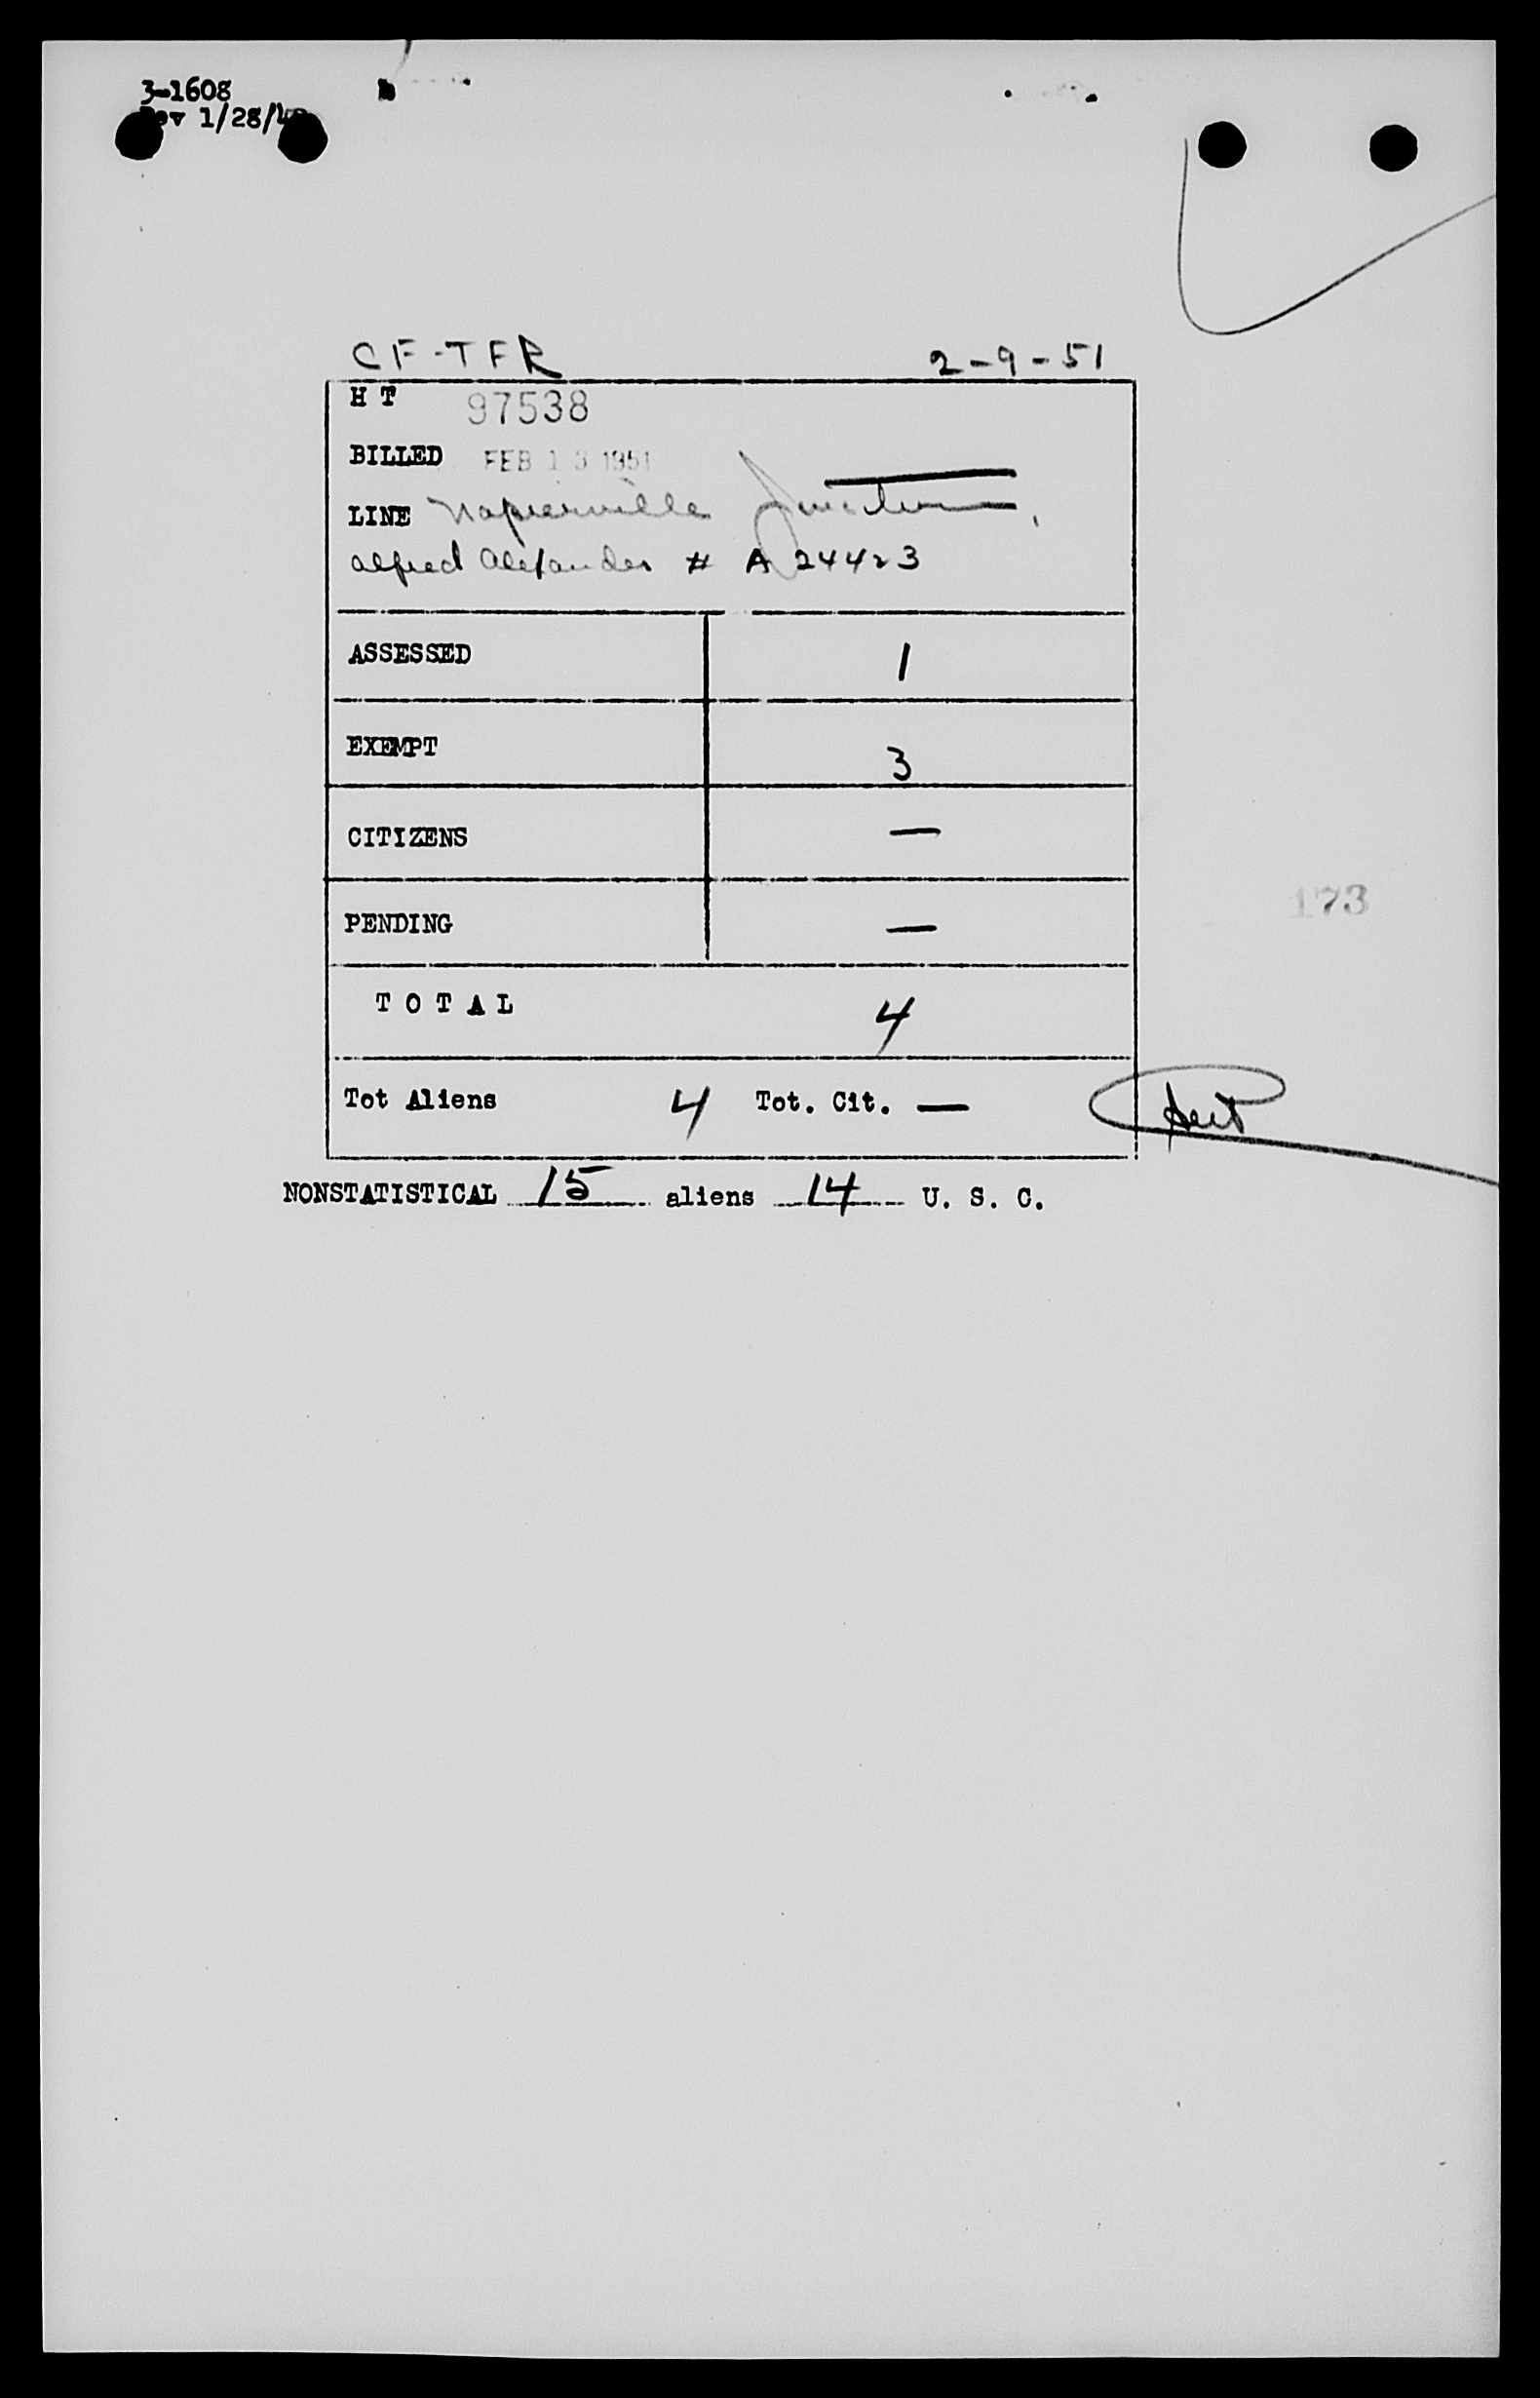 3-1608
Rev 1/28/
CF-TFR 2-9-51
H T 97538
BILLED FEB 13 1951
LINE Napierville Junction,
Alfred Alexander # A 24423
ASSESSED 1
EXEMPT 3
CITIZENS —
173
PENDING —
T O T A L 4
Tot Aliens 4 Tot. Cit. —
NONSTATISTICAL 15 aliens 14 U. S. C.